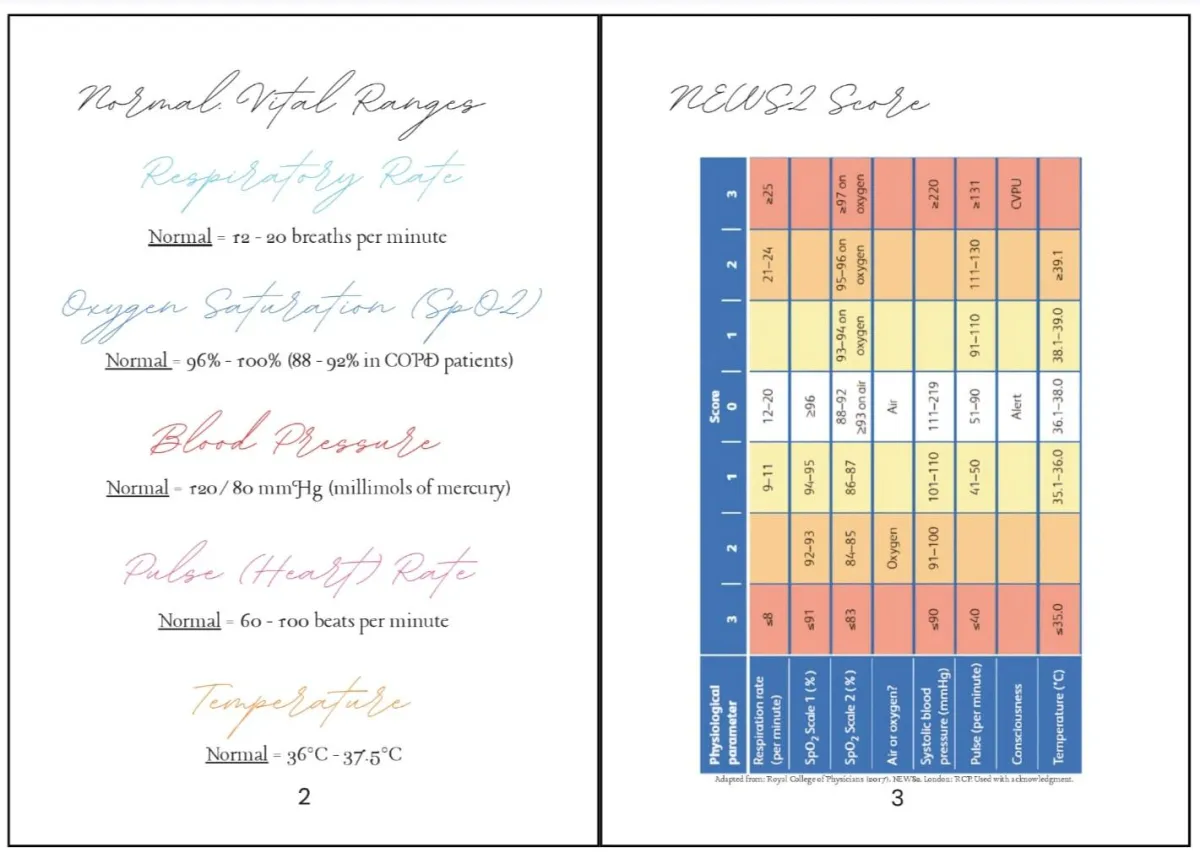 Normal Vital Ranges
Respiratory Rate
Normal = 12 - 20 breaths per minute
Oxygen Saturation (SpO2)
Normal = 96% - 100% (88 - 92% in COPD patients)
Blood Pressure
Normal = 120/ 80 mmHg (millimols of mercury)
Pulse (Heart) Rate
Normal = 60 - 100 beats per minute
Temperature
Normal = 36°C - 37.5°C
2
NEWS2 Score
Physiological parameter
Score
3 2 1 0 1 2 3
Respiration rate (per minute) ≤8 9–11 12–20 21–24 ≥25
SpO2 Scale 1 (%) ≤91 92–93 94–95 ≥96
SpO2 Scale 2 (%) ≤83 84–85 86–87 88–92 ≥93 on air 93–94 on oxygen 95–96 on oxygen ≥97 on oxygen
Air or oxygen? Oxygen Air
Systolic blood pressure (mmHg) ≤90 91–100 101–110 111–219 ≥220
Pulse (per minute) ≤40 41–50 51–90 91–110 111–130 ≥131
Consciousness Alert CVPU
Temperature (°C) ≤35.0 35.1–36.0 36.1–38.0 38.1–39.0 ≥39.1
Adapted from: Royal College of Physicians (2017). NEWS2. London: RCP. Used with acknowledgment.
3